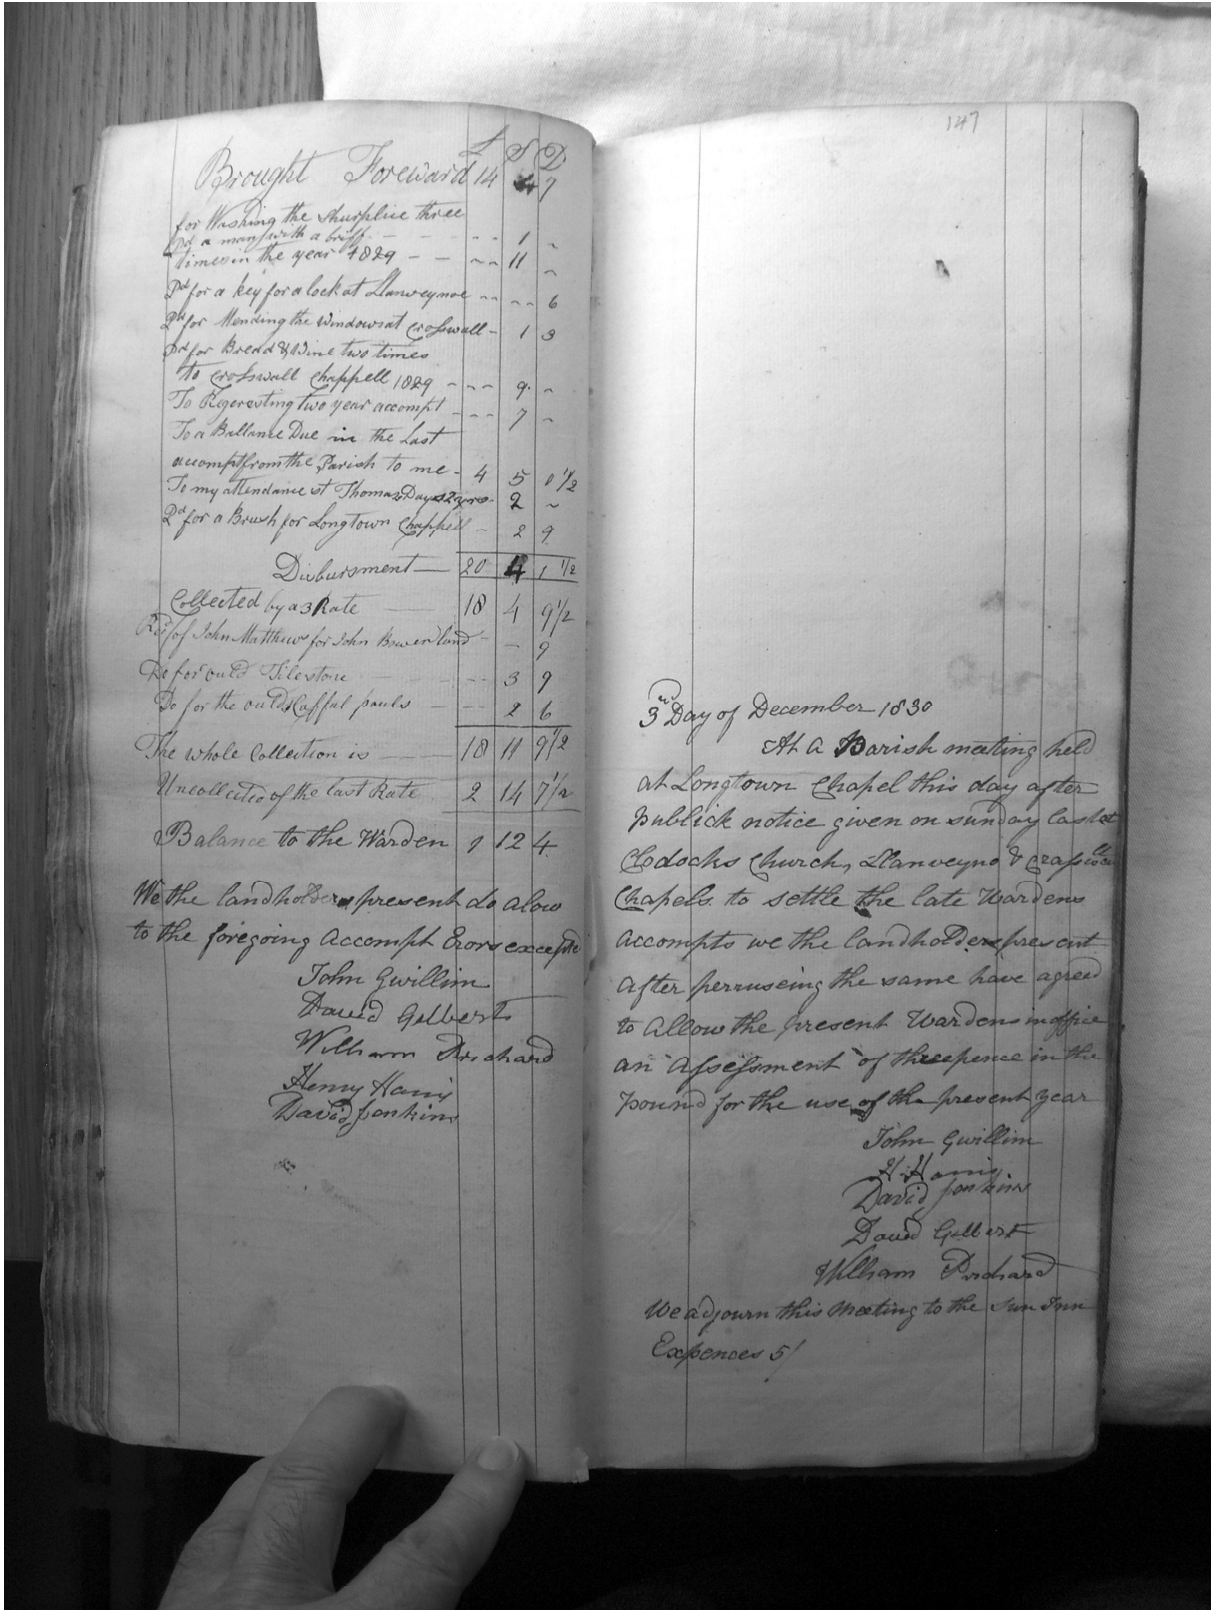 £ S D
Brought Foreward 14 4 7
for Washing the Surplice three
Pd a man with a briff - - - - - 1 ~
times in the year 1829 - - - - 11 ~
Pd for a key for a lock at Llanveynoe - - - - 6
Pd for Mending the Windows at Crosswall - 1 3
Pd for Bread & Wine two times
to Crosswall Chappell 1829 - - - 9 -
To Regeresting two year accompt - - - 7 ~
To a Ballance Due in the Last
accompt from the Parish to me - 4 5 0 1/2
To my attendance st Thomas Day 2 2 ~
Pd for a Brush for Longtown Chappell - 2 9
Disbursment — 20 4 1 1/2
Collected by a 3 Rate — 18 4 9 1/2
Recd of John Matthews for John Bowen land - - 9
Do for ould Tilestone - - 3 9
Do for the ould Scafful pouls - - - 2 6
The whole Collection is — 18 11 9 1/2
Uncollected of the last Rate 2 14 7 1/2
Balance to the Warden 1 12 4
We the landholders present do alow
to the foregoing Accompt Erors excepted
John Gwillim
David Gilbert
William Prichard
Henry Harris
David Jenkins
147
3rd Day of December 1830
At a Parish meeting held
at Longtown Chapel this day after
publick notice given on sunday last at
Clodocks Church, Llanveyno & Craswell
Chapels to settle the late Wardens
accompts we the landholders present
after perruseing the same have agreed
to Allow the present Wardens in office
an Assessment of threepence in the
pound for the use of the present year
John Gwillim
H. Harris
David Jenkins
David Gilbert
William Prichard
We adjourn this Meeting to the Sun Inn
Expences 5/